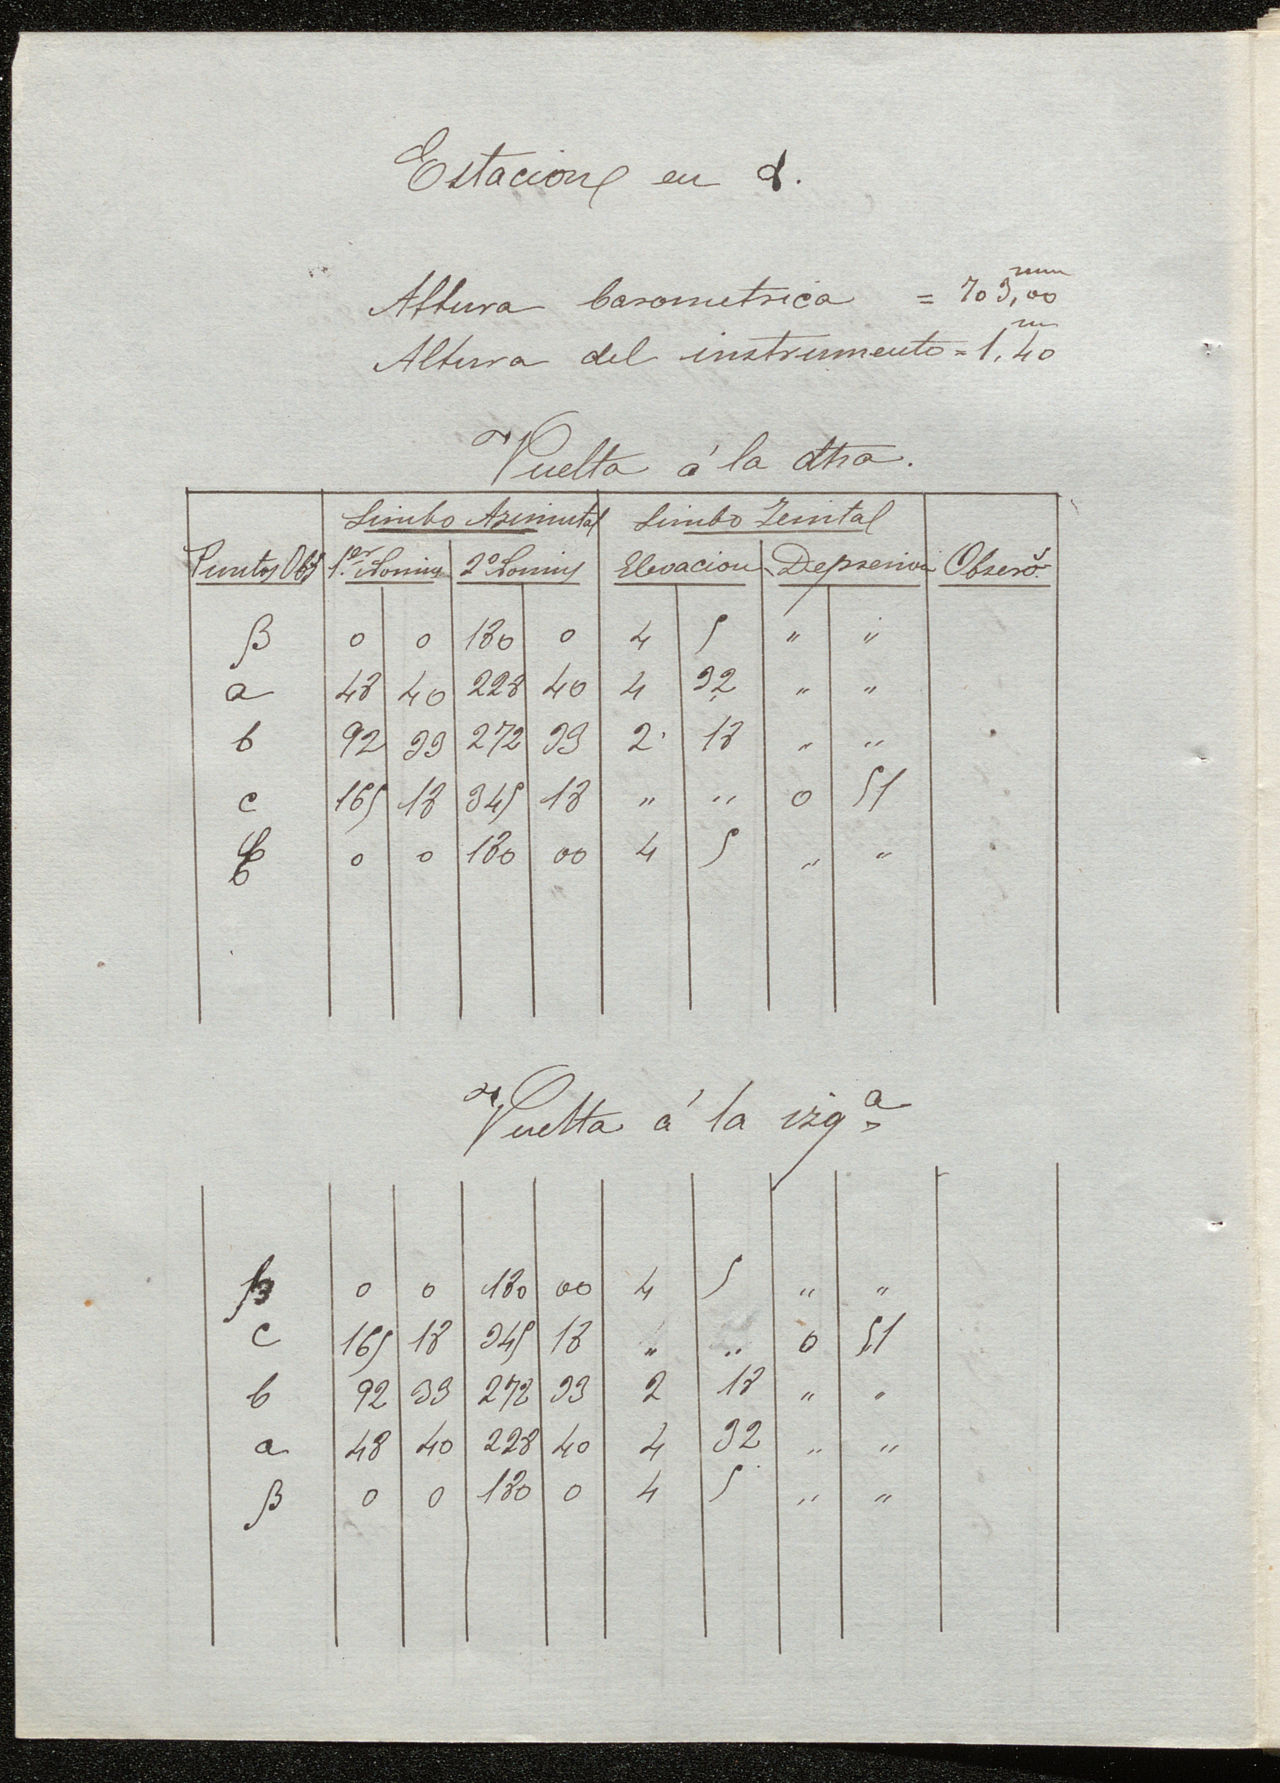 Estacion en α.
Altura barometrica = 703,00 mm
Altura del instrumento = 1,40 m
Vuelta á la dtra.
Limbo Azimutal Limbo Zenital
Puntos Obs 1er Nonius 2º Nonius Elevacion Depresion Observ.
β 0 0 180 0 4 5 " "
a 48 40 228 40 4 32 " "
b 92 33 272 33 2 18 " "
c 165 18 345 18 " " 0 51
0 0 180 00 4 5 " "
Vuelta á la izqª
β 0 0 180 00 4 5 " "
c 165 18 345 18 " " 0 51
b 92 33 272 33 2 18 " "
a 48 40 228 40 4 32 " "
β 0 0 180 0 4 5 " "